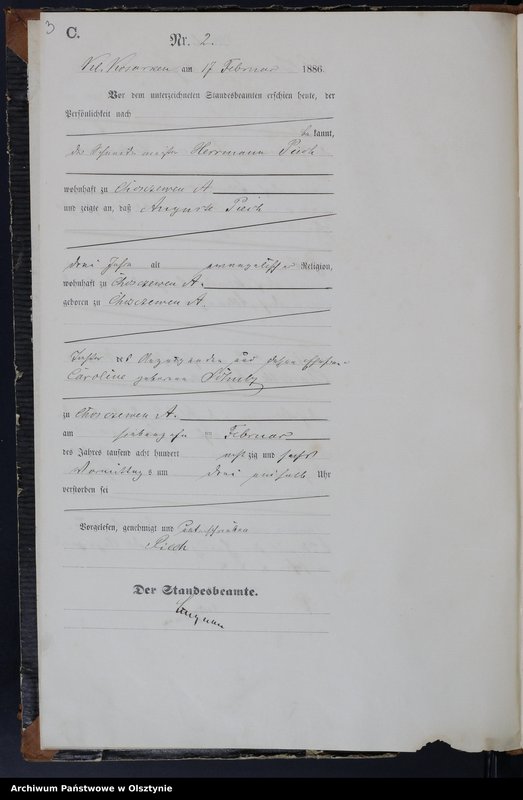 3
C.
Nr. 2.
am 17 Februar 1886.
Vor dem unterzeichneten Standesbeamten erschien heute, der
Persönlichkeit nach
be kannt,
der Schneidermeister Herrmann Piech
wohnhaft zu Choszewen A
und zeigte an, daß Auguste Piech
drei Jahr alt evangelischer Religion,
wohnhaft zu Choszewen A.
geboren zu Choszewen A.
Tochter des Anzeigenden und dessen Ehefrau
Caroline geborene
zu Choszewen A.
am siebenzehn ten Februar
des Jahres tausend acht hundert acht zig und sechs
Vormittag s um drei einhalb Uhr
verstorben sei
Vorgelesen, genehmigt und unterschrieben
Piech
Der Standesbeamte.
Archiwum Państwowe w Olsztynie